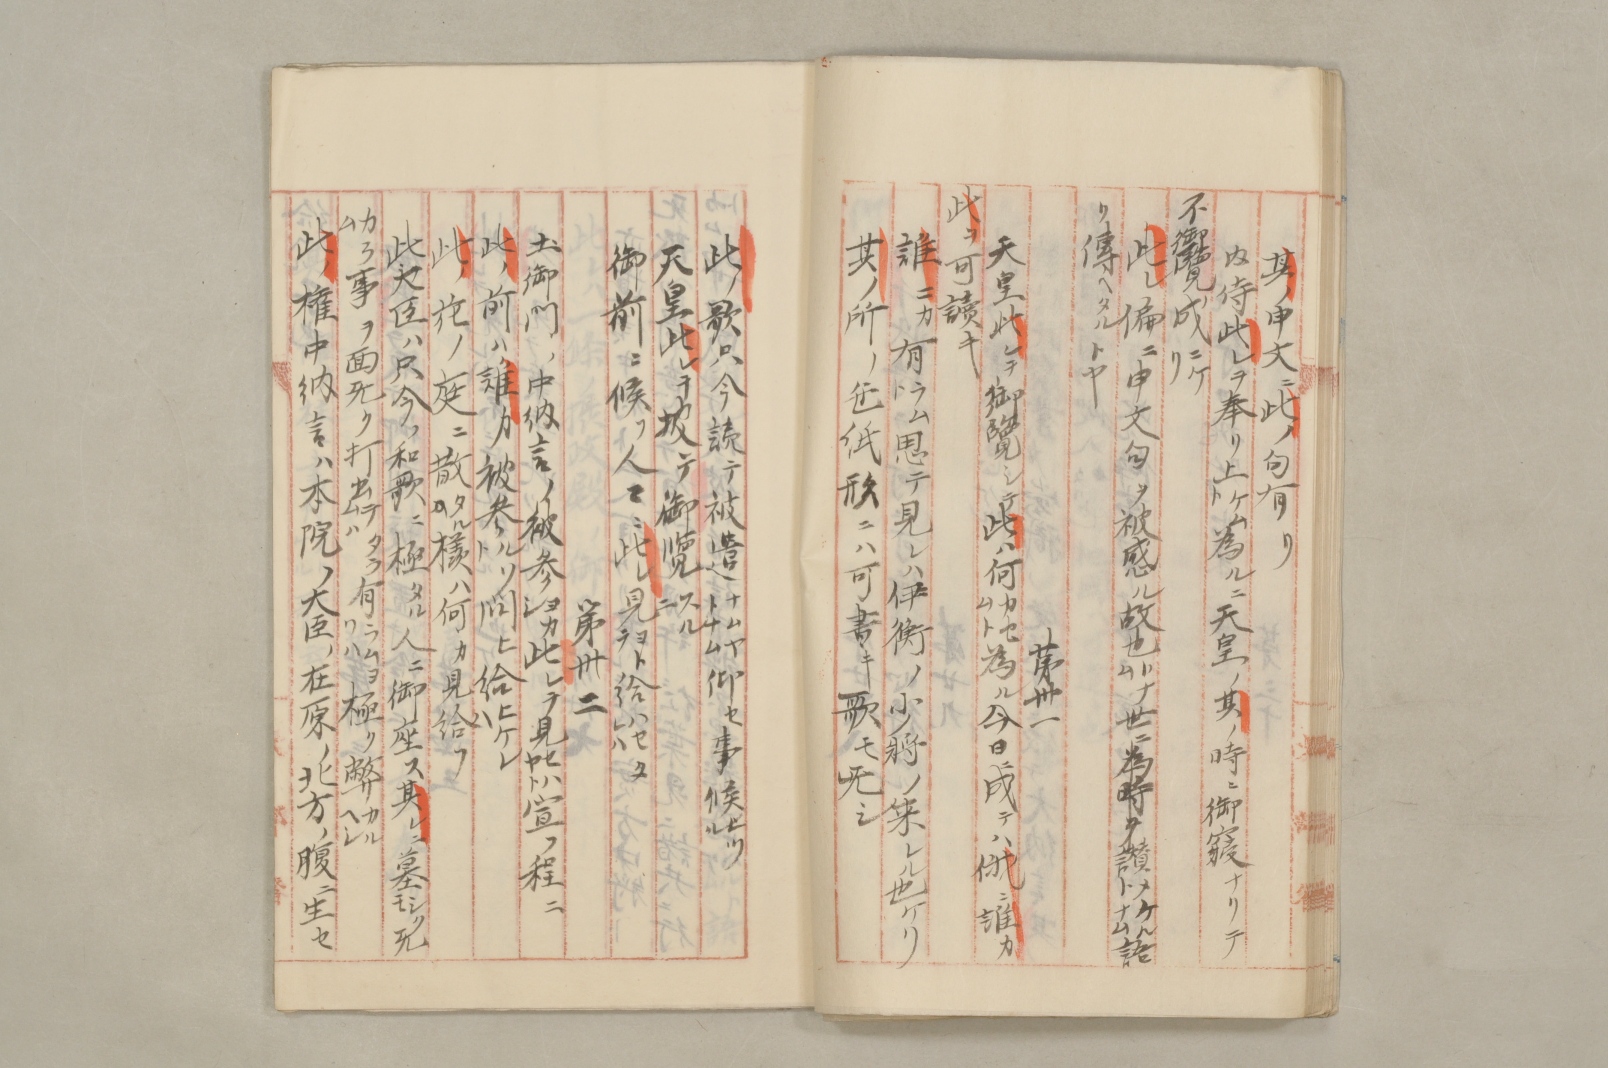 其ノ申文ニ此ノ句有リ
内侍此レヲ奉リ上ケムト為ルニ天皇ノ其ノ時ニ御寝ナリテ
不御覧成ニケリ
此レ偏ニ申文句ヲ被感ル故也トナム世ニ為時ヲ讃メケルトナム語
リ傳ヘタルトヤ
第卅一
天皇此レヲ御覧シテ此ハ何カセムト為ル今日ニ成テハ俄ニ誰カ
此ヲ可讀キ
誰ニカ有ラムト思テ見レハ伊衡ノ小将ノ来レル也ケリ
其ノ所ノ色紙形ニハ可書キ歌モ无シ
此ノ歌只今読テ被遣ナムヤトナム仰セ事候ヒツル
天皇此レヲ披テ御覧スルニ
御前ニ候フ人〻ニ此レ見ヨトテ給ハセタレハ
第卅二
土御門ノ中納言ノ被参ヨカシ此レヲ見セハヤト宣フ程ニ
此ノ前ハ誰カ被参ルソト問ヒ給ヒケレハ
此ノ花ノ庭ニ散タル様ハ何カ見給フ
此大臣ハ只今ノ和歌ニ極タル人ニ御座ス其レニ墓〻モシク无
カラム事ヲ面无ク打出テタラムハ有ラムヨリハ極ク弊カルヘシ
此ノ権中納言ハ本院ノ大臣ノ在原ノ北方ノ腹ニ生セ